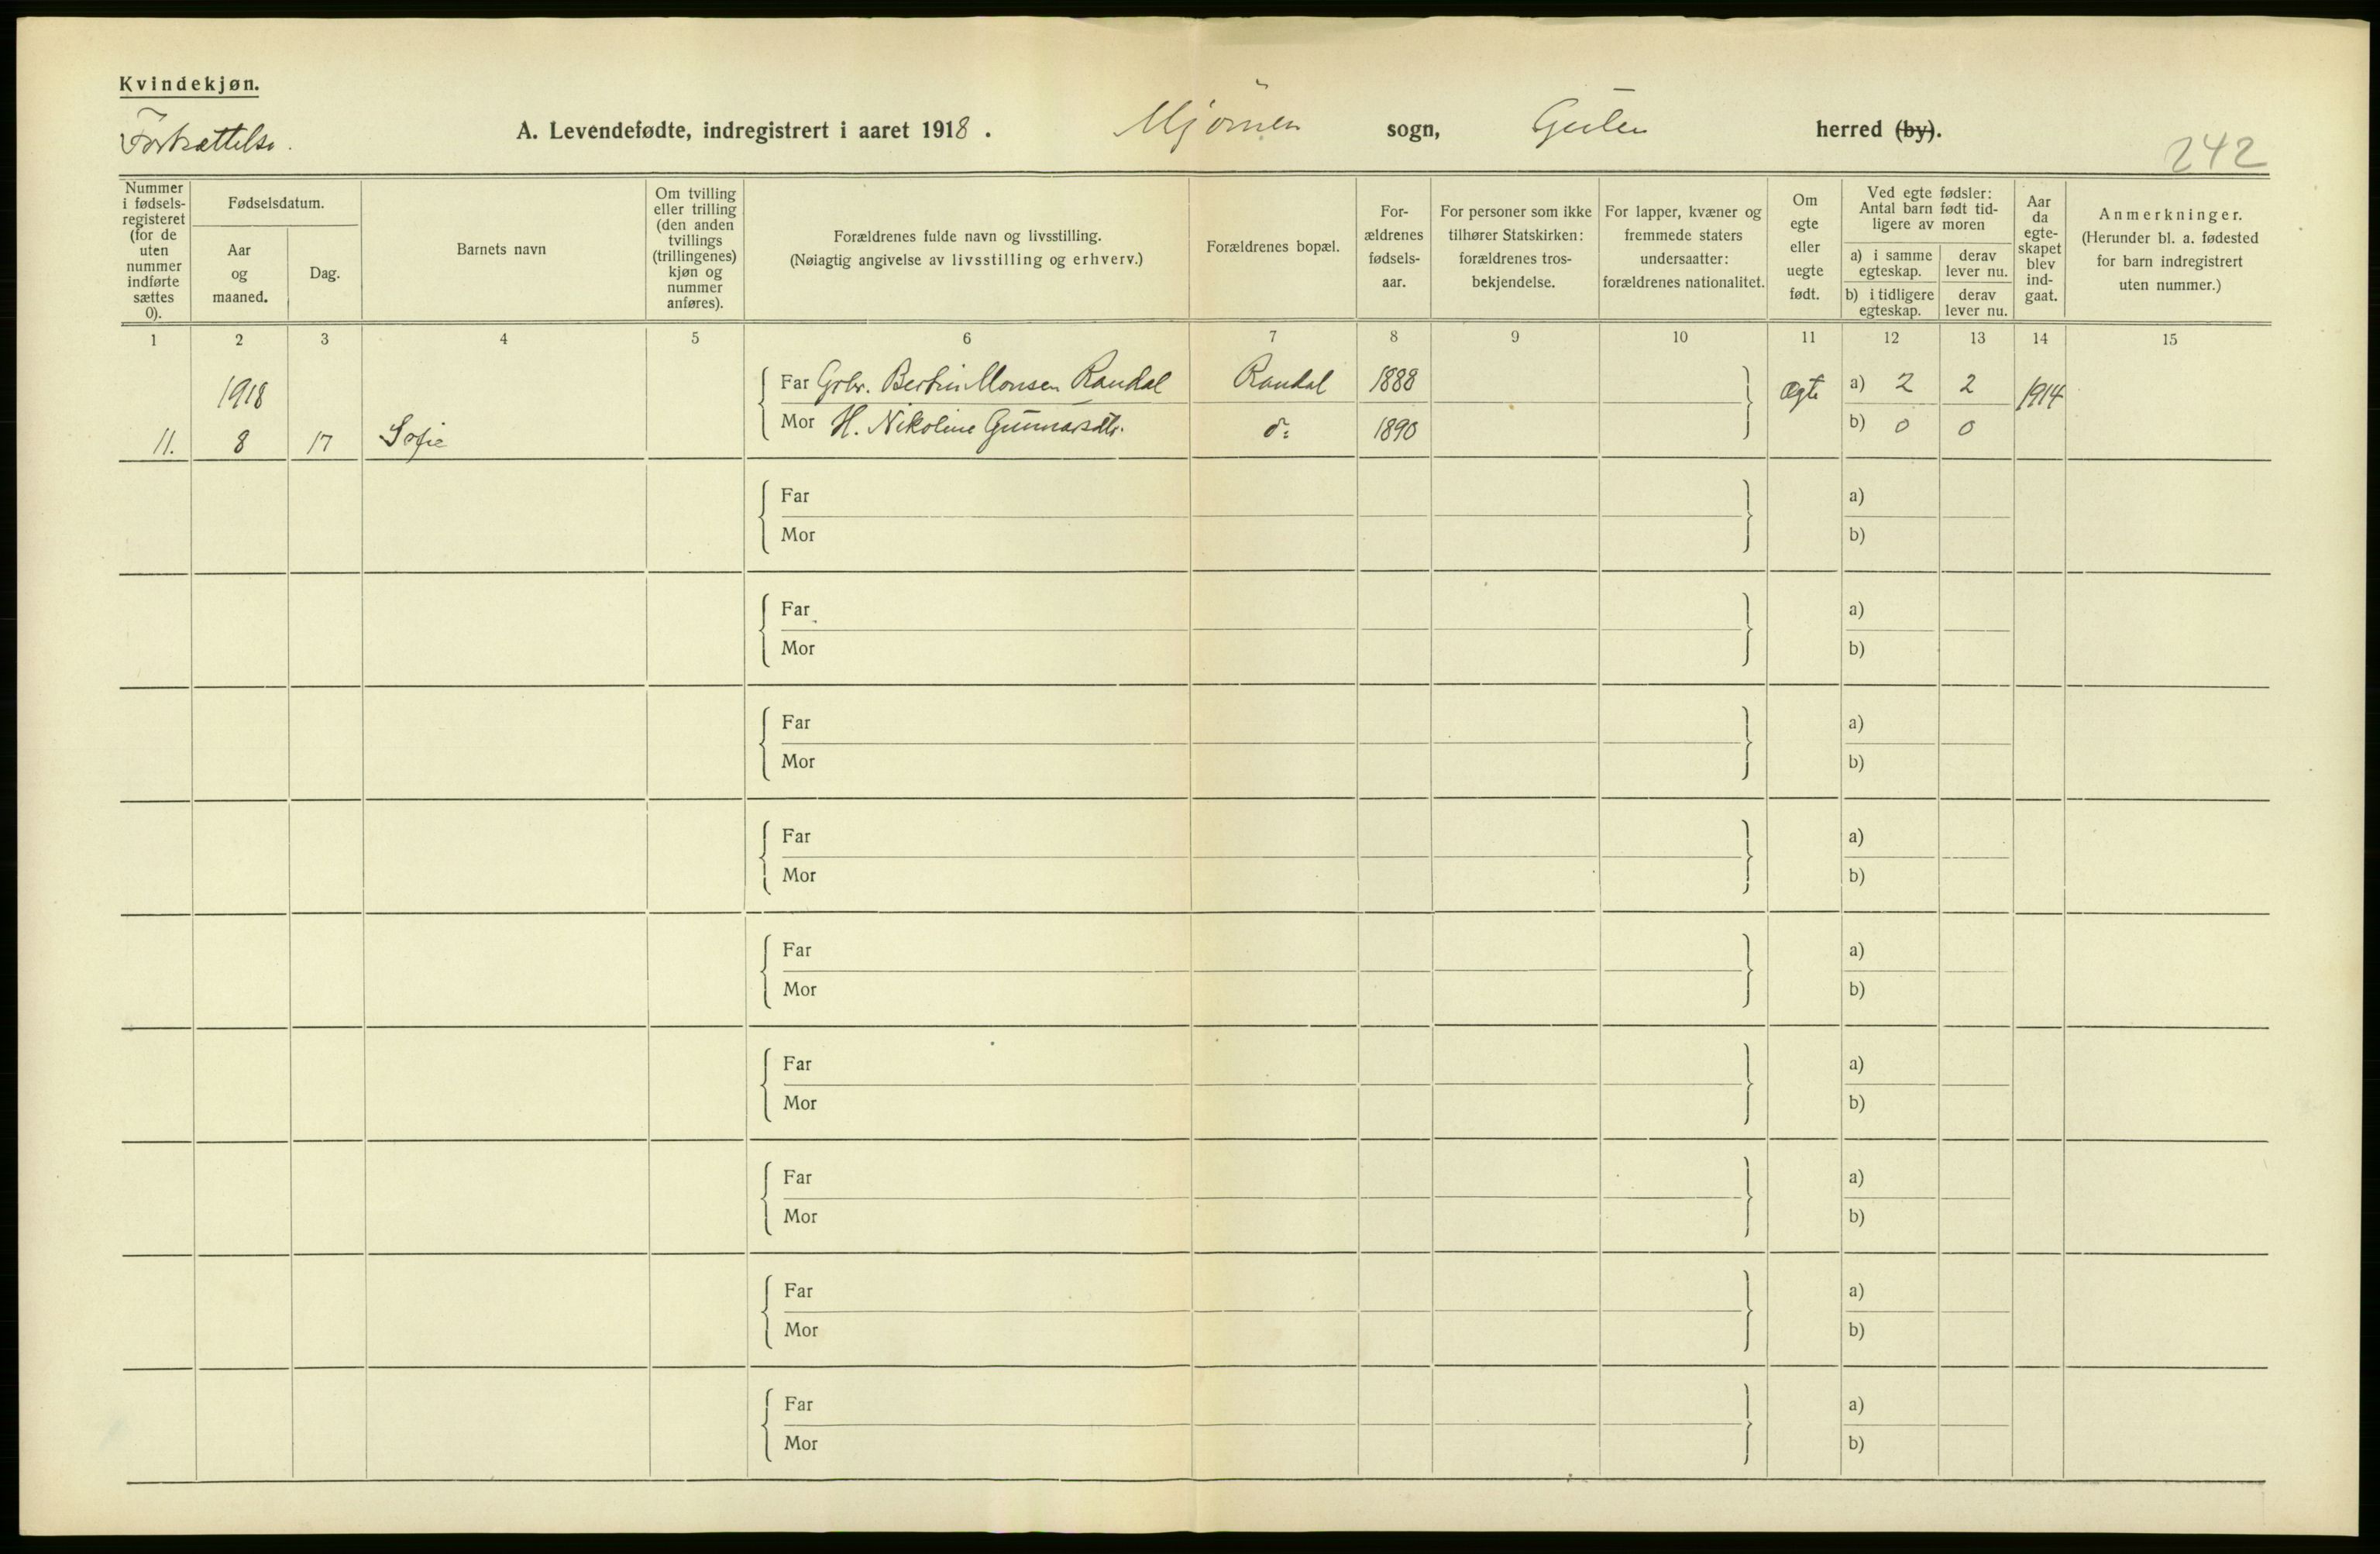 Kvindekjøn.
Fortsættelse.
A. Levendefødte, indregistrert i aaret 1918. Mjömen sogn, Gulen herred (by).
242
Nummer i fødselsregisteret (for de uten nummer indførte sættes 0).
Fødselsdatum.
Aar og maaned.
Dag.
Barnets navn
Om tvilling eller trilling (den anden tvillings (trillingenes) kjøn og nummer anføres).
Forældrenes fulde navn og livsstilling.
(Nøiagtig angivelse av livsstilling og erhverv.)
Forældrenes bopæl.
For-ældrenes fødsels-aar.
For personer som ikke tilhører Statskirken: forældrenes tros-bekjendelse.
For lapper, kvæner og fremmede staters undersaatter: forældrenes nationalitet.
Om egte eller uegte født.
Ved egte fødsler: Antal barn født tid-ligere av moren
a) i samme egteskap.
derav lever nu.
b) i tidligere egteskap.
derav lever nu.
Aar da egte-skapet blev ind-gaat.
Anmerkninger.
(Herunder bl. a. fødested for barn indregistrert uten nummer.)
1 2 3 4 5 6 7 8 9 10 11 12 13 14 15
1918
Far Grbr. Bertin Monsen Randal Randal 1888 Ægte a) 2 2 1914
11. 8 17 Sofie
Mor H. Nikoline Gunnarsdtr. do 1890 b) 0 0
Far a)
Mor b)
Far a)
Mor b)
Far a)
Mor b)
Far a)
Mor b)
Far a)
Mor b)
Far a)
Mor b)
Far a)
Mor b)
Far a)
Mor b)
Far a)
Mor b)